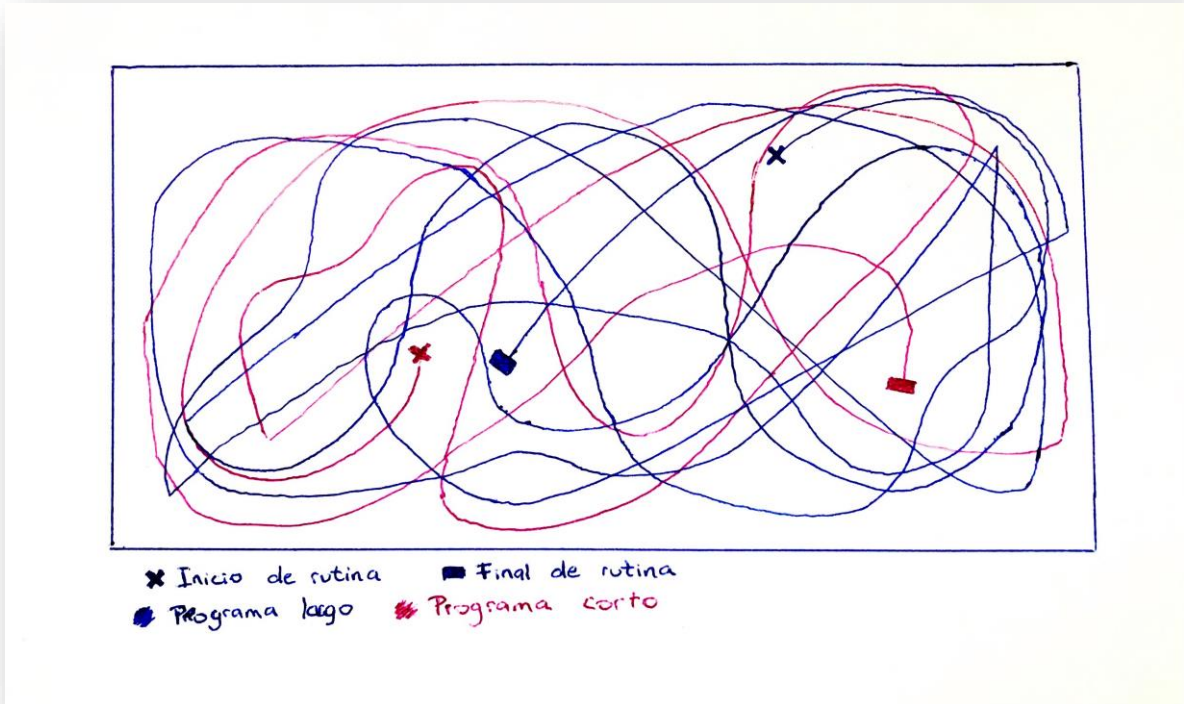 Inicio de rutina Final de rutina
Programa largo Programa corto